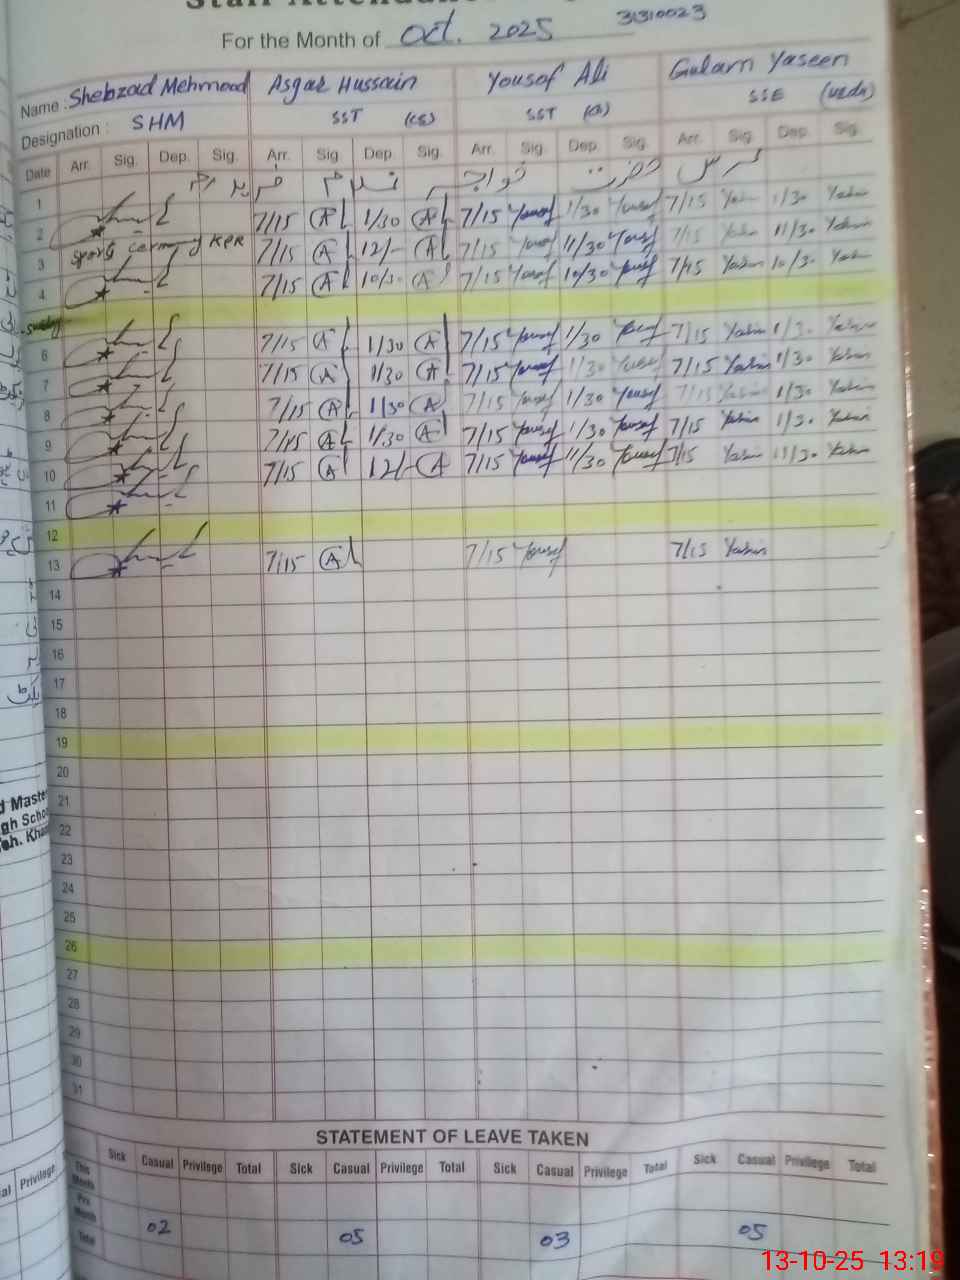 Staff Attendance
For the Month of Oct. 2025 31310023
Name : Shehzad Mehmood Asgar Hussain Yousaf Ali Gulam Yaseen
Designation : SHM SST (CS) SST SSE (Urdu)
Date Arr. Sig. Dep. Sig. Arr. Sig Dep. Sig. Arr. Sig. Dep. Sig. Arr. Sig. Dep. Sig.
1 عرس حضرت خواجہ غلام فرید
2 7/15 A 1/30 A 7/15 Yousf 1/30 Yousf 7/15 Yasin 1/30 Yasin
3 KPR 7/15 A 12/- A 7/15 Yousf 11/30 Yousf 7/15 Yasin 11/30 Yasin
4 7/15 A 10/30 A 7/15 Yousf 10/30 Yousf 7/15 Yasin 10/30 Yasin
6 7/15 A 1/30 A 7/15 Yousf 1/30 Yousf 7/15 Yasin 1/30 Yasin
7 7/15 A 1/30 A 7/15 Yousf 1/30 Yousf 7/15 Yasin 1/30 Yasin
8 7/15 A 1/30 A 7/15 Yousf 1/30 Yousf 7/15 Yasin 1/30 Yasin
9 7/15 A 1/30 A 7/15 Yousf 1/30 Yousf 7/15 Yasin 1/30 Yasin
10 7/15 A 12/- A 7/15 Yousf 11/30 Yousf 7/15 Yasin 11/30 Yasin
11
12
13 7/15 A 7/15 Yousf 7/15 Yasin
14
15
16
17
18
19
20
21
22
23
24
25
26
27
28
29
30
31
STATEMENT OF LEAVE TAKEN
Sick Casual Privilege Total Sick Casual Privilege Total Sick Casual Privilege Total Sick Casual Privilege Total
This Month
Pre Month
Total 02 05 03 05
13-10-25 13:19